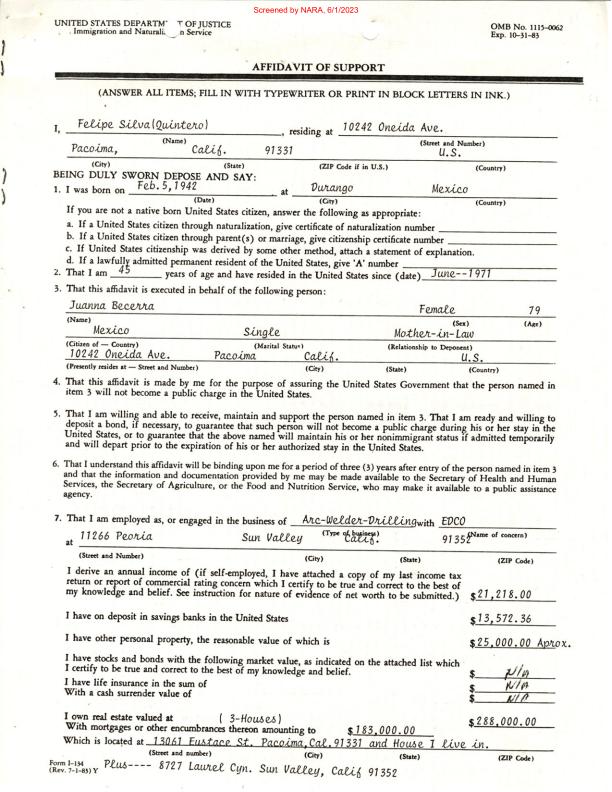 Screened by NARA, 6/1/2023
UNITED STATES DEPARTM T OF JUSTICE OMB No. 1115-0062
Immigration and Naturali n Service Exp. 10-31-83
AFFIDAVIT OF SUPPORT
(ANSWER ALL ITEMS; FILL IN WITH TYPEWRITER OR PRINT IN BLOCK LETTERS IN INK.)
I, Felipe Silva(Quintero) , residing at 10242 Oneida Ave.
(Name) (Street and Number)
Pacoima, Calif. 91331 U.S.
(City) (State) (ZIP Code if in U.S.) (Country)
BEING DULY SWORN DEPOSE AND SAY:
1. I was born on Feb.5,1942 at Durango Mexico
(Date) (City) (Country)
If you are not a native born United States citizen, answer the following as appropriate:
a. If a United States citizen through naturalization, give certificate of naturalization number
b. If a United States citizen through parent(s) or marriage, give citizenship certificate number
c. If United States citizenship was derived by some other method, attach a statement of explanation.
d. If a lawfully admitted permanent resident of the United States, give 'A' number
2. That I am 45 years of age and have resided in the United States since (date) June--1971
3. That this affidavit is executed in behalf of the following person:
Juanna Becerra Female 79
(Name) (Sex) (Age)
Mexico Single Mother-in-Law
(Citizen of — Country) (Marital Status) (Relationship to Deponent)
10242 Oneida Ave. Pacoima Calif. U.S.
(Presently resides at — Street and Number) (City) (State) (Country)
4. That this affidavit is made by me for the purpose of assuring the United States Government that the person named in
item 3 will not become a public charge in the United States.
5. That I am willing and able to receive, maintain and support the person named in item 3. That I am ready and willing to
deposit a bond, if necessary, to guarantee that such person will not become a public charge during his or her stay in the
United States, or to guarantee that the above named will maintain his or her nonimmigrant status if admitted temporarily
and will depart prior to the expiration of his or her authorized stay in the United States.
6. That I understand this affidavit will be binding upon me for a period of three (3) years after entry of the person named in item 3
and that the information and documentation provided by me may be made available to the Secretary of Health and Human
Services, the Secretary of Agriculture, or the Food and Nutrition Service, who may make it available to a public assistance
agency.
7. That I am employed as, or engaged in the business of Arc-Welder-Drilling with EDCO
(Type of business) (Name of concern)
at 11266 Peoria Sun Valley Calif. 91352
(Street and Number) (City) (State) (ZIP Code)
I derive an annual income of (if self-employed, I have attached a copy of my last income tax
return or report of commercial rating concern which I certify to be true and correct to the best of
my knowledge and belief. See instruction for nature of evidence of net worth to be submitted.) $21,218.00
I have on deposit in savings banks in the United States $13,572.36
I have other personal property, the reasonable value of which is $25,000.00 Aprox.
I have stocks and bonds with the following market value, as indicated on the attached list which
I certify to be true and correct to the best of my knowledge and belief. $ N/A
I have life insurance in the sum of $ N/A
With a cash surrender value of $ N/A
I own real estate valued at ( 3-Houses) $288,000.00
With mortgages or other encumbrances thereon amounting to $183,000.00
Which is located at 13061 Eustace St. Pacoima,Cal.91331 and House I live in.
(Street and number) (City) (State) (ZIP Code)
Form I-134
(Rev. 7-1-83) Y Plus---- 8727 Laurel Cyn. Sun Valley, Calif 91352